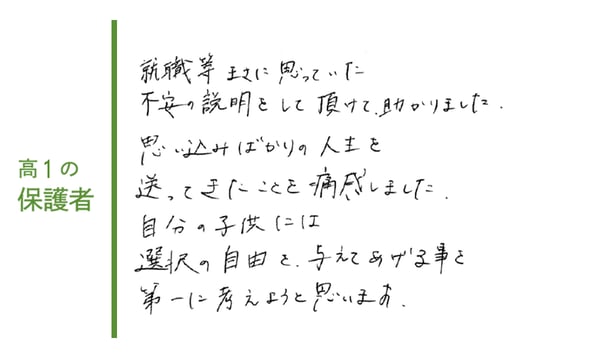 高1の
保護者
就職等まさに思っていた
不安の説明をして頂けて、助かりました.
思い込みばかりの人生を
送ってきたことを痛感しました.
自分の子供には
選択の自由を、与えてあげる事を
第一に考えようと思います.